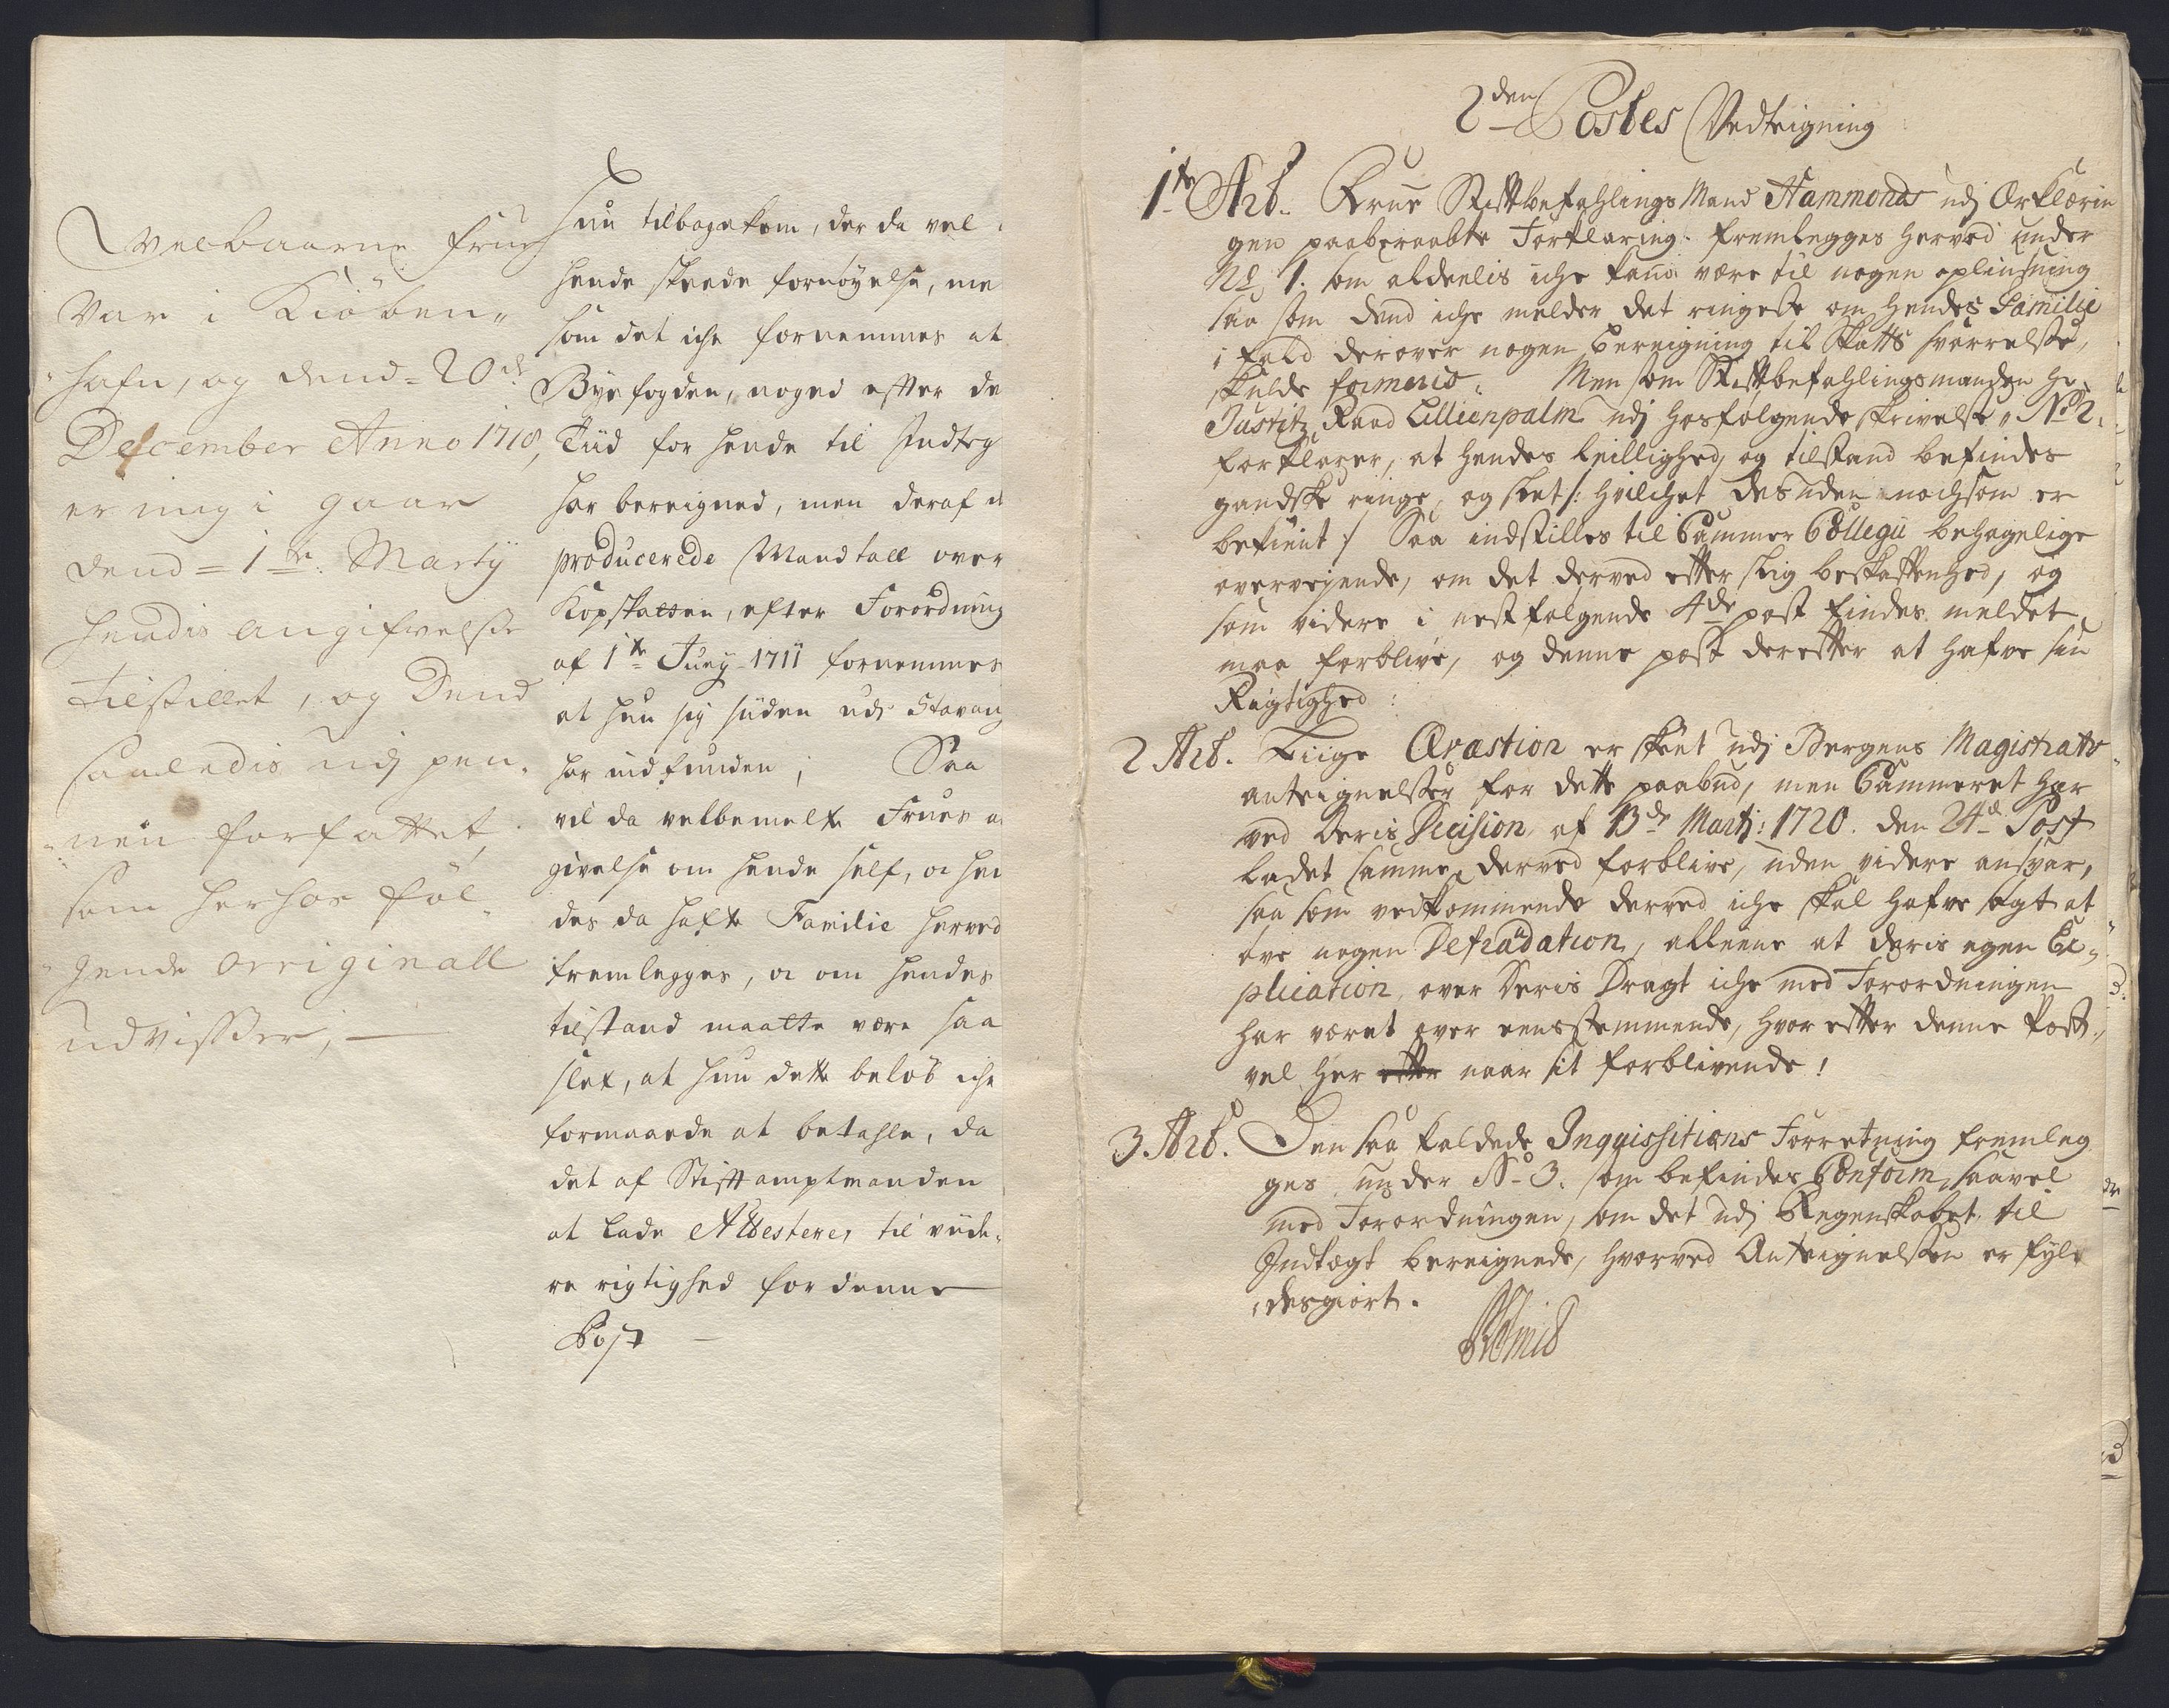 Welbaarne Frue
Var i Kiöben„
hafn, og dend = 20de
December Anno 1710,
er mig i gaar
dend = 1te Martÿ
hendis angifvelsse
tilstillet, og Dend
saaledis udj pen„
nen forfattet,
som herhos föl„
gende orriginall
udvisser, —
hun tilbagekom, der da vel
hende skeede fornöyelse, me
som det iche fornemmes at
Byefogden, noged efter de
Tiid for hende til Indteg
har bereigned, men deraf
producerede Mandtall over
Kopskatten, efter Forordning
af 1te Juny 1711 fornemmes
at hun sig siiden udj Stavang
har indfunden; Saa
vil da velbemelte Frues a
givelse om hende self, og hen
des da hafte Familie herved
fremlegges, og om hendes
tilstand maatte være saa
slet, at hun dette beløb iche
formaaede at betahle, da
det af Stiftamptmanden
at lade Attestere, til viide„
re rigtighed for denne
Post —
2den Postes Vedteigning
1te Art. Frue Stiftbefahlings Mand Hammonds udj Erklærin
gen paaberaabte Forklaring fremlegges herved under
No 1. som aldenlis iche kand være til nogen opliusning
saa som dend iche melder det ringeste om hendes Familie
i fald derover nogen bereigning til Skatts svarrelse,
skulde formeris. Men som Stiftbefahlingsmanden Hr
Justitz Raad Lillienpalm udj hosfølgende skrivelse No 2.
forklarer, at hendes leillighed, og tilstand befindes
gandske ringe, og slet /: hvilchet desuden nochsom er
bekient :/ Saa indstilles til Cammer Collegii behagelige
overvejende, om det derved efter slig beskaffenhed, og
som videre i nestfølgende 4de post findes meldet,
maa forblive, og denne post derefter at hafve sin
Rigtighed:
2 Art. Liige Qvæstion er skeet udj Bergens Magistrats
anteignelser for dette paabud, men Cammeret har
ved Deris Decision af 13de Martj: 1720. den 24de Post
ladet samme derved forblive, uden videre ansvar,
saa som vedkommende derved iche skal hafve søgt at
øve nogen Defraudation, alleene at deris egen Ex„
plication, over Deris Dragt iche med Forordningen
har været over eensstemmende, hvor efter denne Post„
vel her efter naar sit forblivende!
3. Art. Den saa kaldede Inqvissitions Forretning fremleg
ges under No 3. som befindes Conform, saavel
med Forordningen, som det udj Regenskabet til
Indtægt bereignede, hvorved Anteignelsen er fyl„
destgiort.